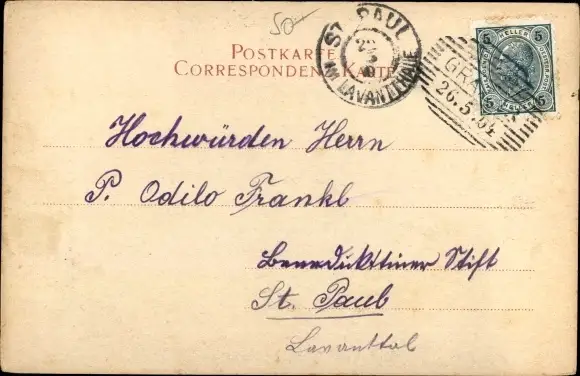 50-
POSTKARTE
CORRESPONDENZ-KARTE
ST. PAUL
IM LAVANTTHALE
5 HELLER 5
5 HELLER 5
GRA
26.5.04
Hochwürden Herrn
P. Odilo Frankl
Benediktiner Stift
St. Paul
Lavanttal